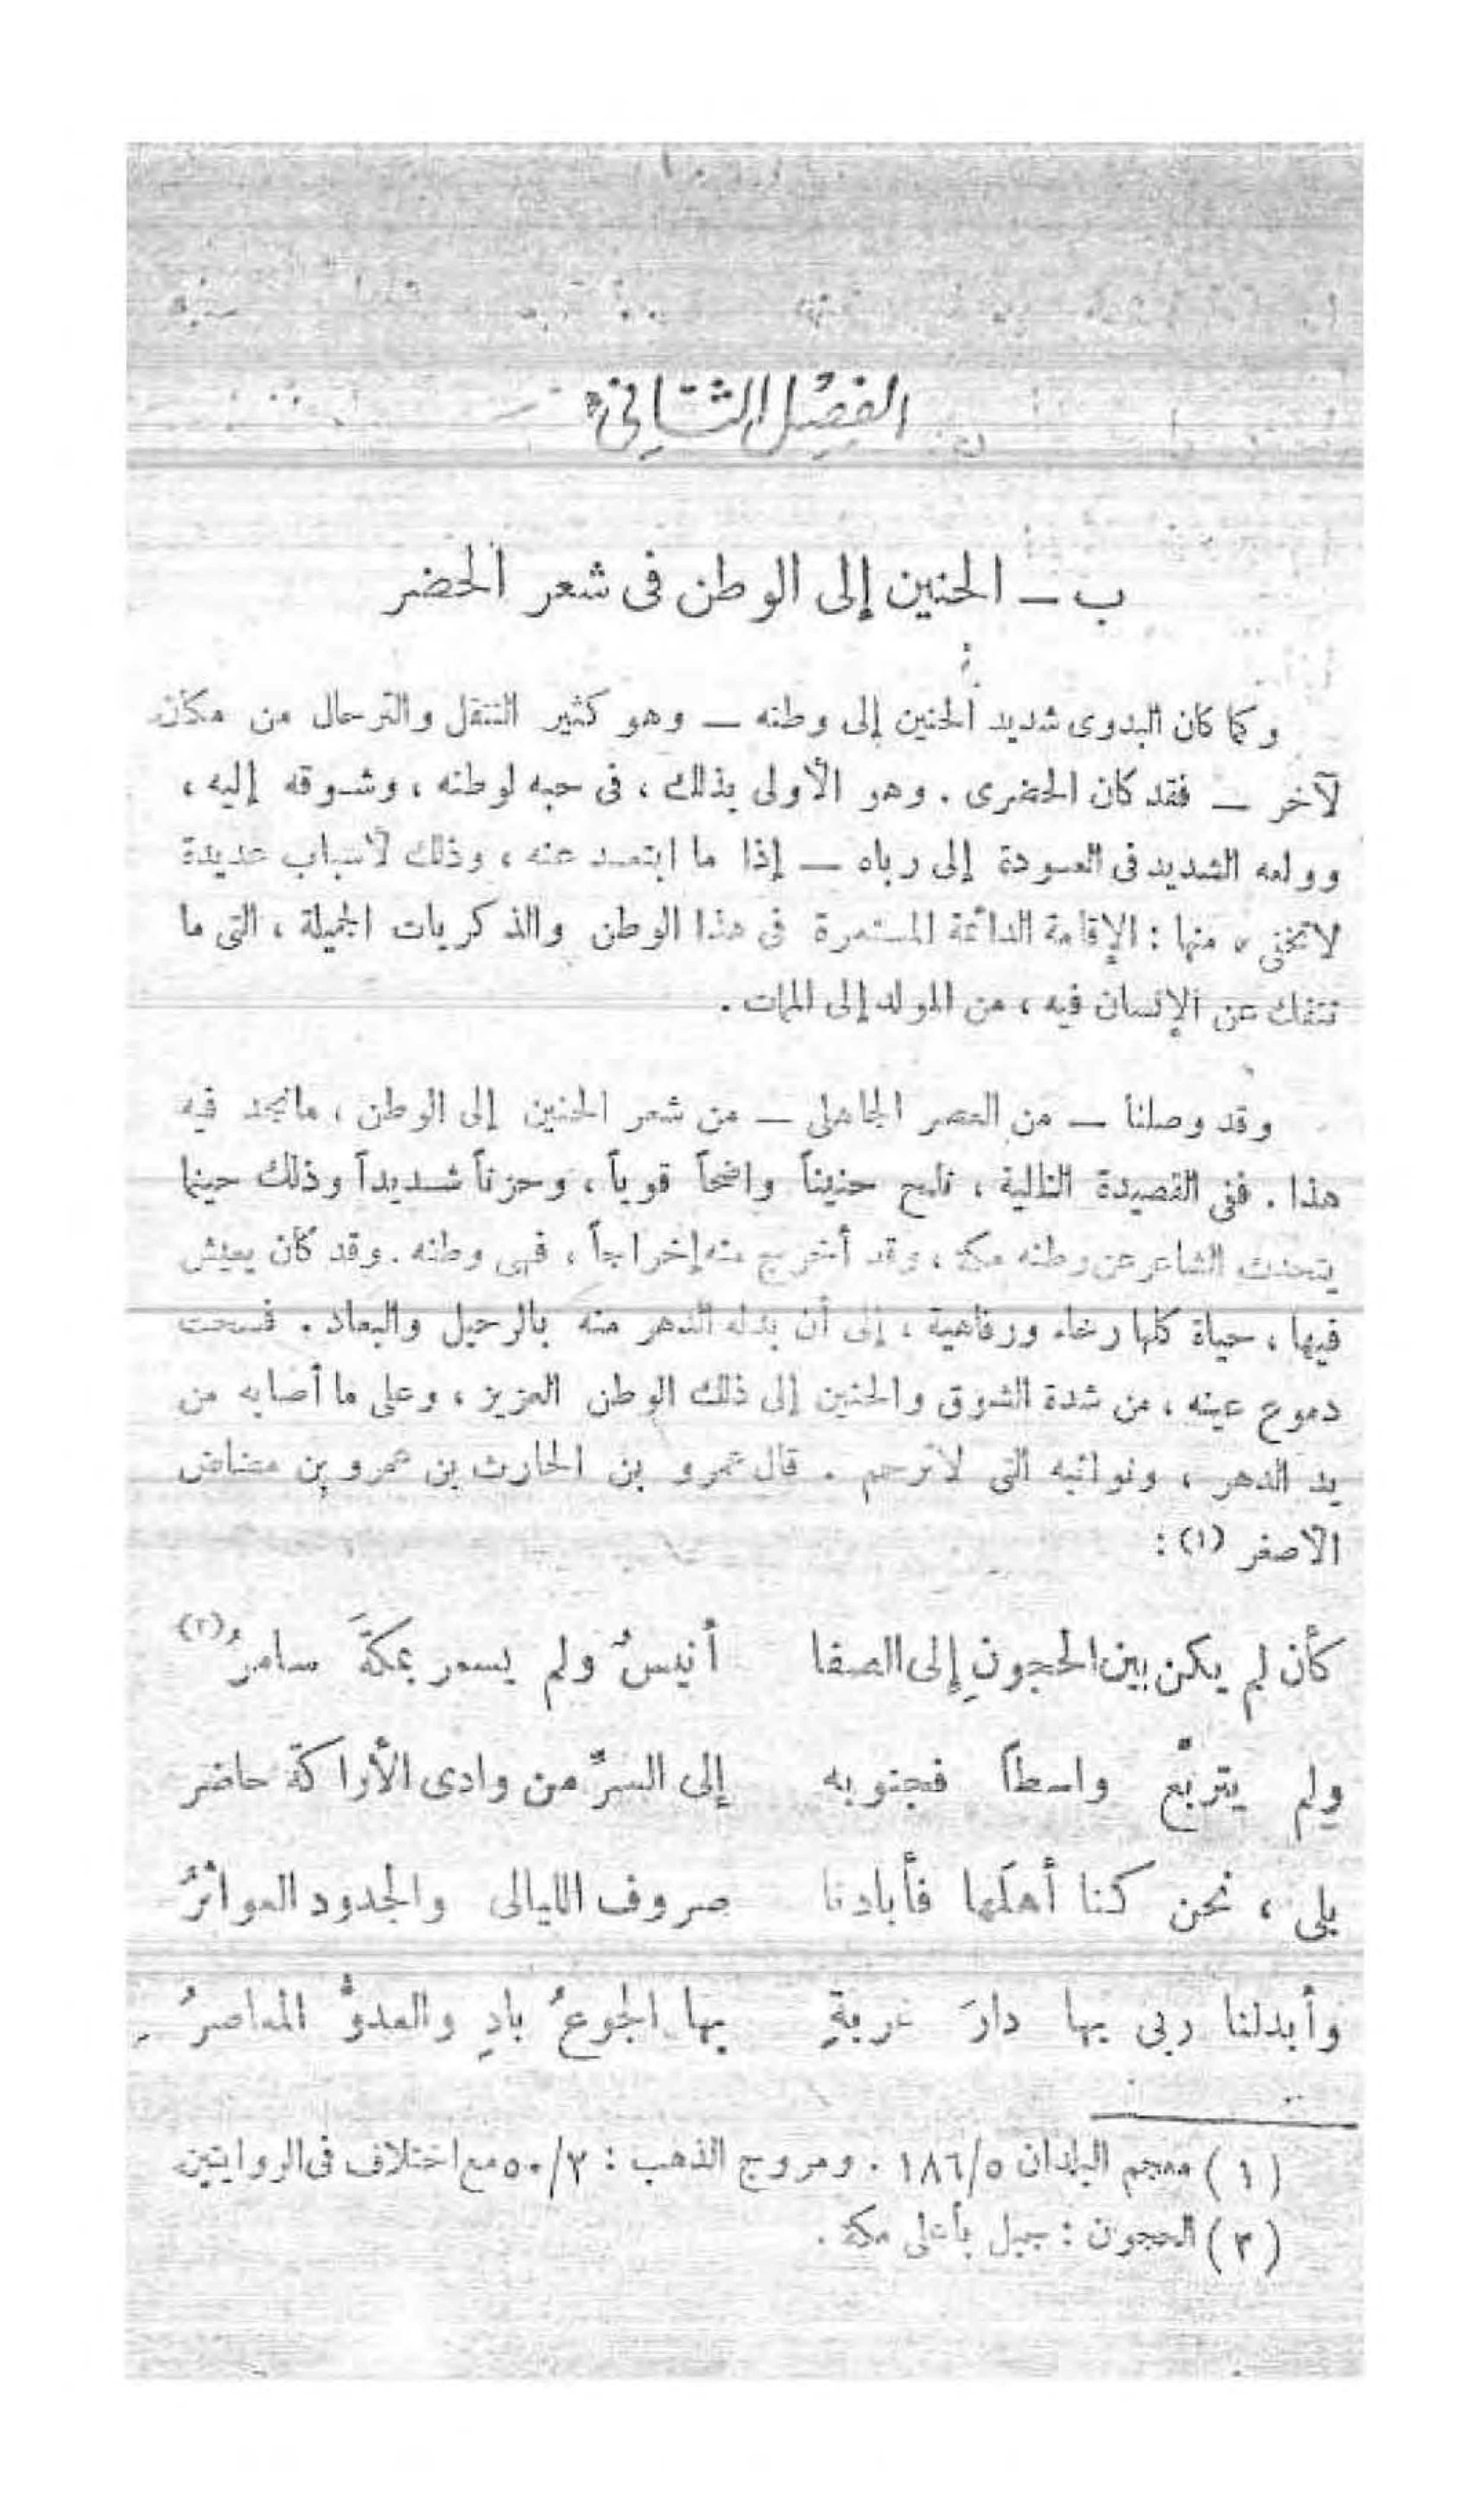 الفصل الثاني
ب – الحنين إلى الوطن فى شعر الحضر
وكما كان البدوى شديد الحنين إلى وطنه – وهو كثير التنقل والترحال من مكان
لآخر – فقد كان الحضرى . وهو الأولى بذلك ، فى حبه لوطنه ، وشوقه إليه ،
وولعه الشديد فى العودة إلى رباه – إذا ما ابتعد عنه ، وذلك لأسباب عديدة
لاتخفى ، منها : الإقامة الدائمة المستمرة فى هذا الوطن والذكريات الجميلة ، التى ما
تنفك عن الإنسان فيه ، من المولد إلى الممات .
وقد وصلنا – من العصر الجاهلى – من شعر الحنين إلى الوطن ، مانجد فيه
هذا . ففى القصيدة التالية ، نلمح حنيناً واضحاً قوياً ، وحزناً شديداً وذلك حينما
يتحدث الشاعر عن وطنه مكة ، وقد أخرج منه إخراجاً ، فهى وطنه . وقد كان يعيش
فيها ، حياة كلها رخاء ورفاهية ، إلى أن بدله الدهر منه بالرحيل والبعاد . فسحت
دموع عينه ، من شدة الشوق والحنين إلى ذلك الوطن العزيز ، وعلى ما أصابه من
يد الدهر ، ونوائبه التى لاترحم . قال عمرو بن الحارث بن عمرو بن مضاض
الأصغر (١) :
كأن لم يكن بين الحجونِ إلى الصفا أنيسٌ ولم يسمر بمكةَ سامرُ (٢)
ولم يتربّع واسطاً فجنوبه إلى السرِّ من وادى الأراكة حاضر
بلى ، نحن كنا أهلَها فأبادنا صروف الليالى والجدود العواثرُ
وأبدلنا ربى بها دارَ غربةٍ بها الجوعُ بادٍ والعدوُّ المعاصرُ
(١) معجم البلدان ١٨٦/٥ . ومروج الذهب : ٥٠/٢ مع اختلاف فى الروايتين
(٢) الحجون : جبل بأعلى مكة .